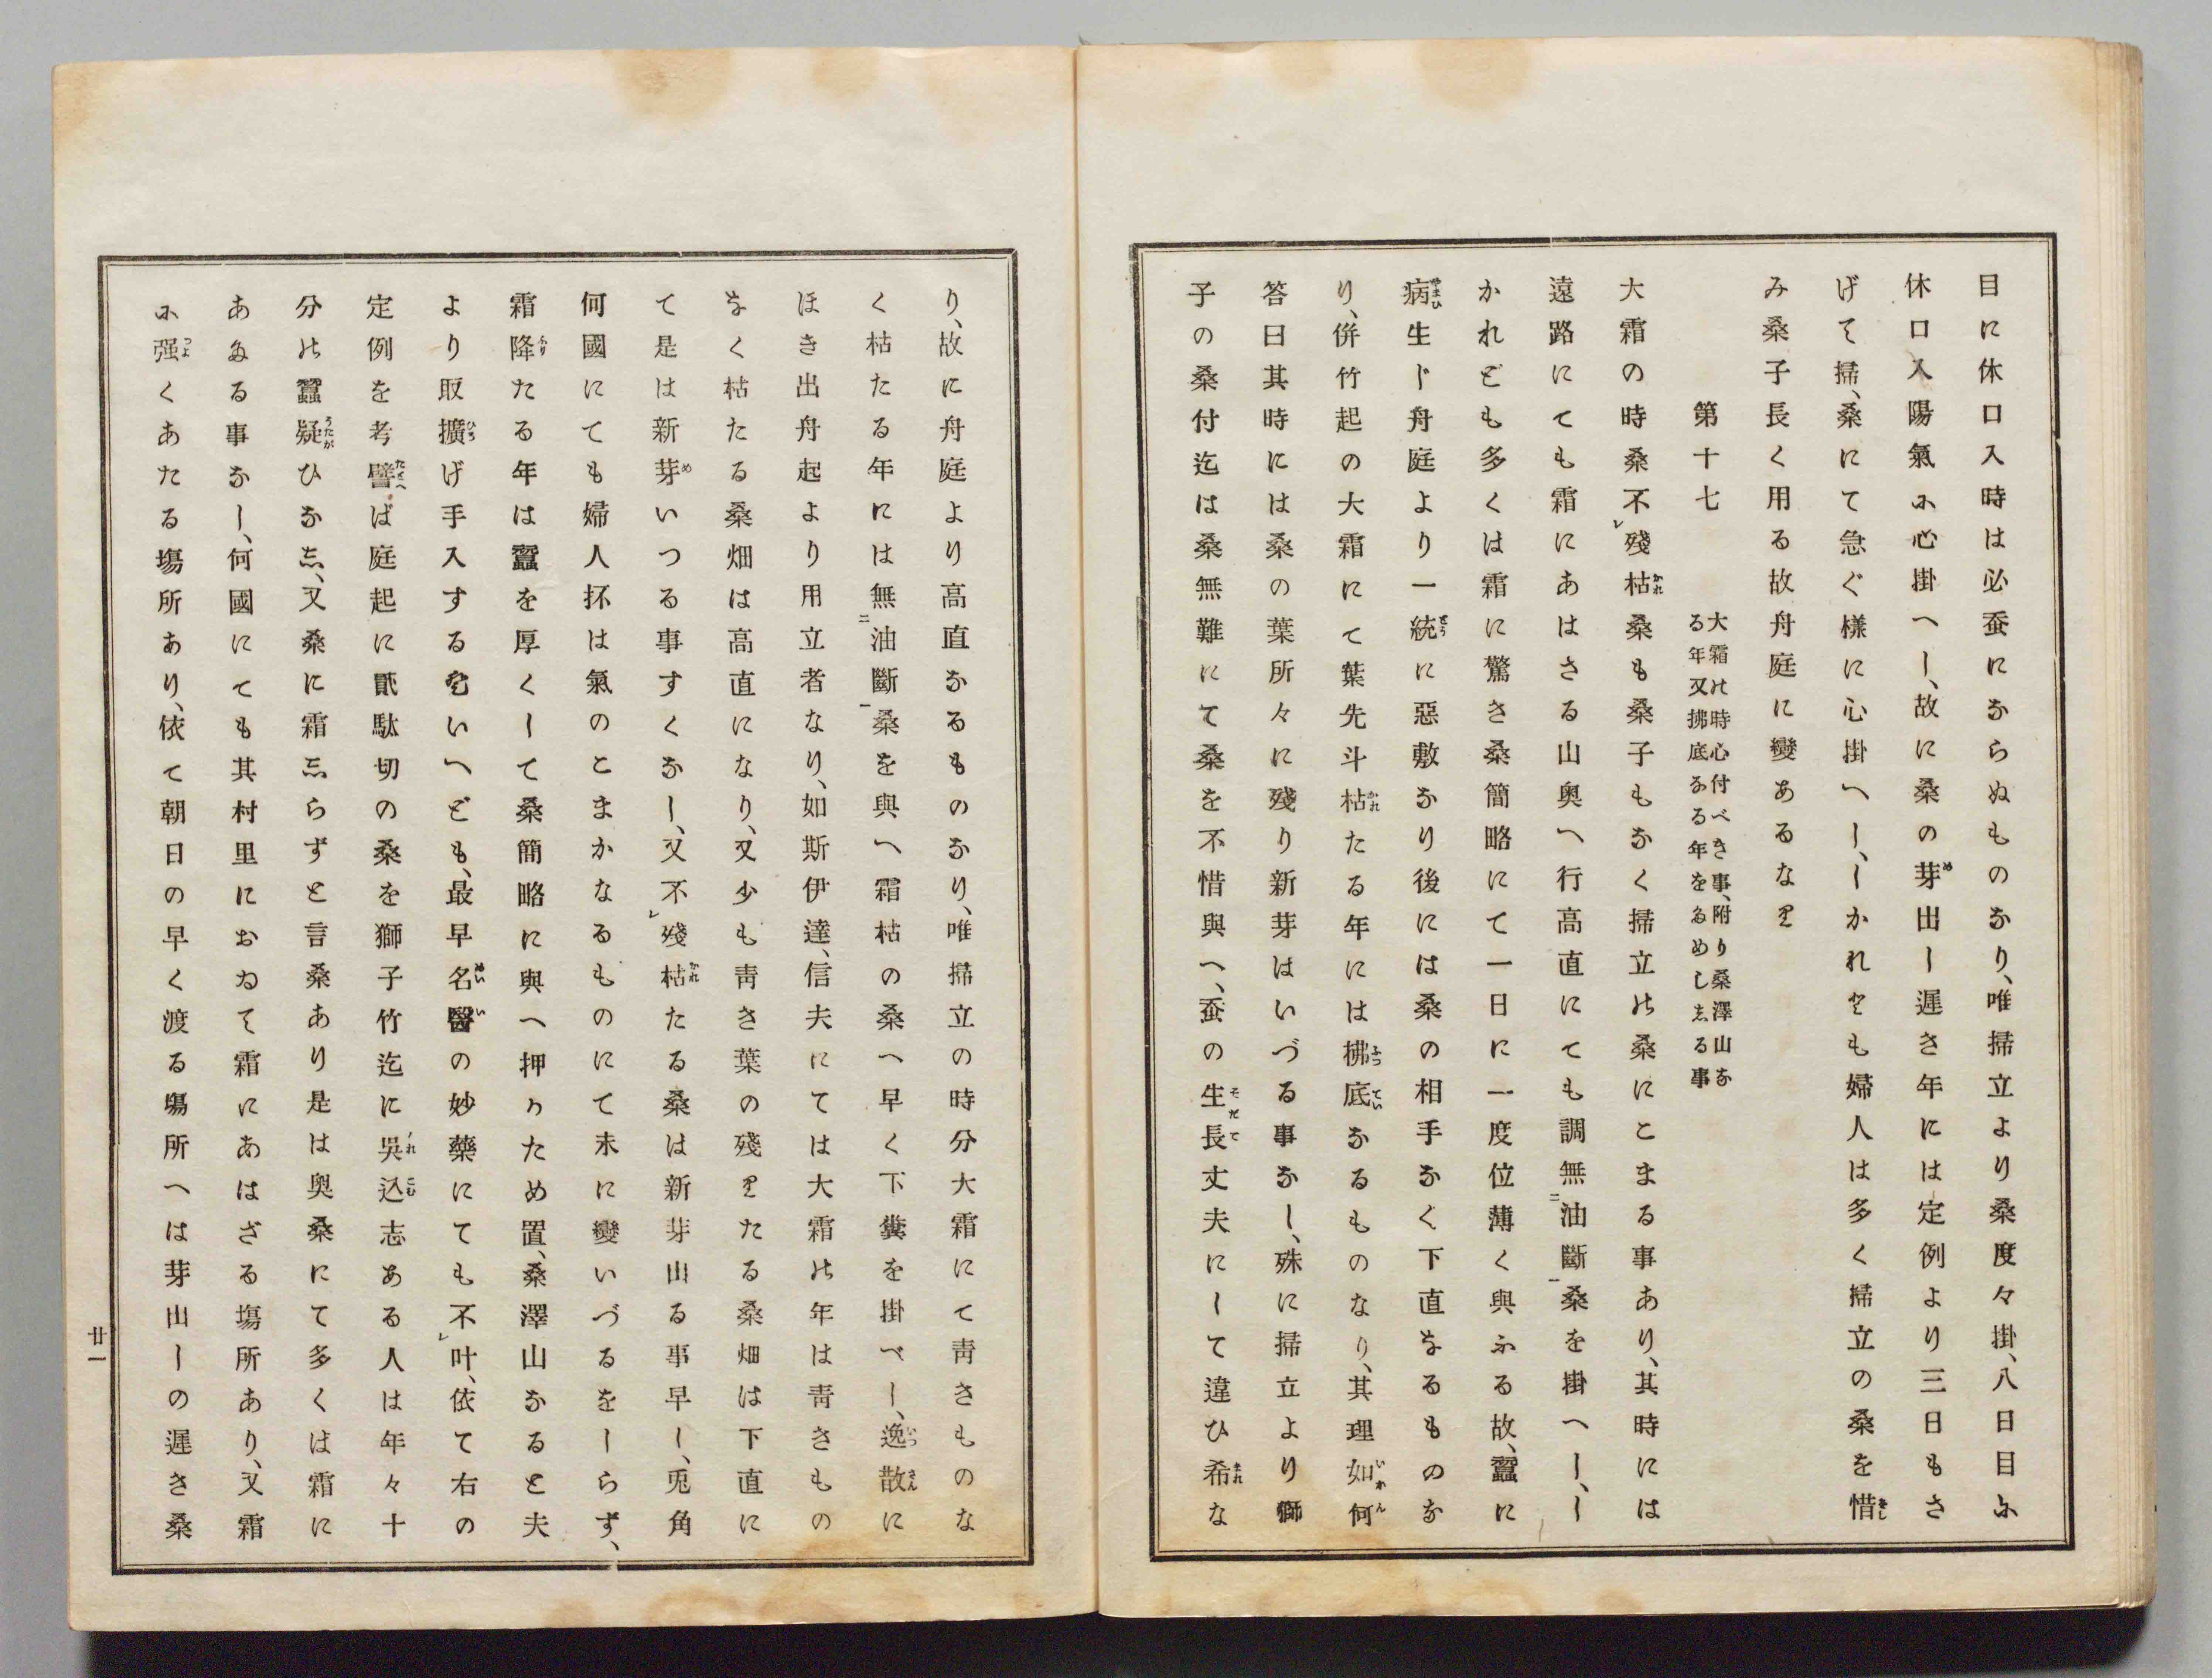 目に休口入時は必蚕にあらぬものなり、唯掃立より桑度々掛、八日目に
休口入陽氣に心掛へし、故に桑の芽出し遅き年には定例より三日もさ
げて掃、桑にて急ぐ様に心掛へし、しかれども婦人は多く掃立の桑を惜
み桑子長く用る故舟庭に變あるなり
第十七
大霜の時心付べき事、附り桑澤山な
る年又拂底なる年をためししる事
大霜の時桑不レ殘枯桑も桑子もなく掃立の桑にこまる事あり、其時には
遠路にても霜にあはさる山奥へ行高直にても調無二油斷一桑を掛へし、し
かれども多くは霜に驚き桑簡略にて一日に一度位薄く與ふる故、蠶に
病生じ舟庭より一統に惡敷なり後には桑の相手なく下直なるものな
り、併竹起の大霜にて葉先斗枯たる年には拂底なるものなり、其理如何
答曰其時には桑の葉所々に殘り新芽はいづる事なし、殊に掃立より獅
子の桑付迄は桑無難にて桑を不惜與へ、蚕の生長丈夫にして違ひ希な
り、故に舟庭より高直なるものなり、唯掃立の時分大霜にて靑きものな
く枯たる年には無二油斷一桑を與へ霜枯の桑へ早く下糞を掛べし、逸散に
ほき出舟起より用立者なり、如斯伊達、信夫にては大霜の年は靑きもの
なく枯たる桑畑は高直になり、又少も靑き葉の殘りたる桑畑は下直に
て是は新芽いつる事すくなし、又不レ殘枯たる桑は新芽出る事早し、兎角
何國にても婦人抔は氣のこまかなるものにて末に變いづるをしらず、
霜降たる年は蠶を厚くして桑簡略に與へ押かため置、桑澤山なると夫
より取擴げ手入するといへども、最早名醫の妙藥にても不レ叶、依て右の
定例を考譬ば庭起に貳駄切の桑を獅子竹迄に吳込志ある人は年々十
分の蠶疑ひなし、又桑に霜しらずと言桑あり是は奥桑にて多くは霜に
あたる事なし、何國にても其村里におゐて霜にあはざる塲所あり、又霜
に强くあたる塲所あり、依て朝日の早く渡る塲所へは芽出しの遅き桑
廿一